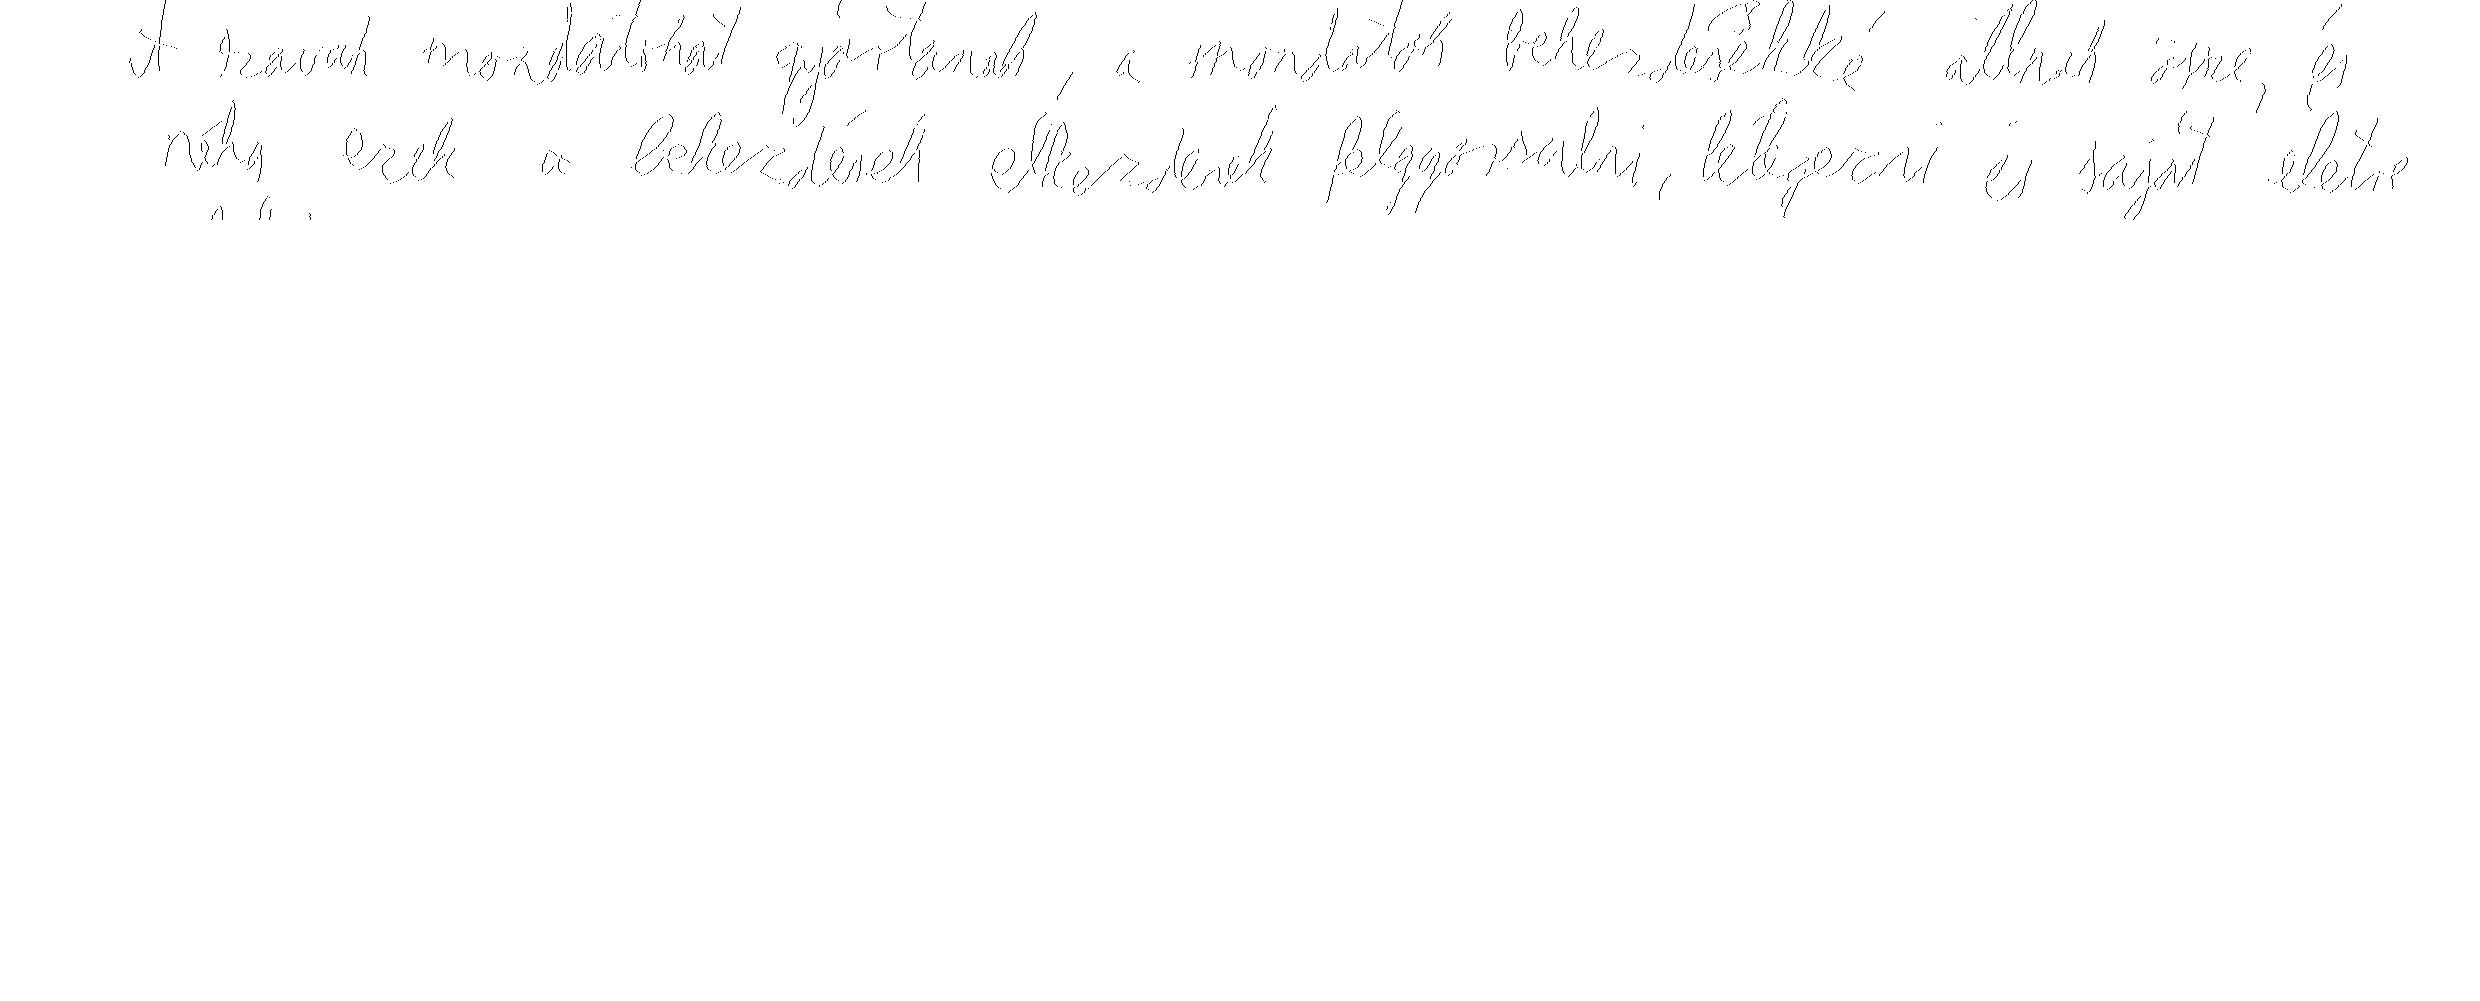 A szavak mozdatokat gyártanak, a mondatok bekezdésekké állnak össze, és
néha ezek a bekezdések elkezdenek felgyorsulni, lélegezni és saját életre